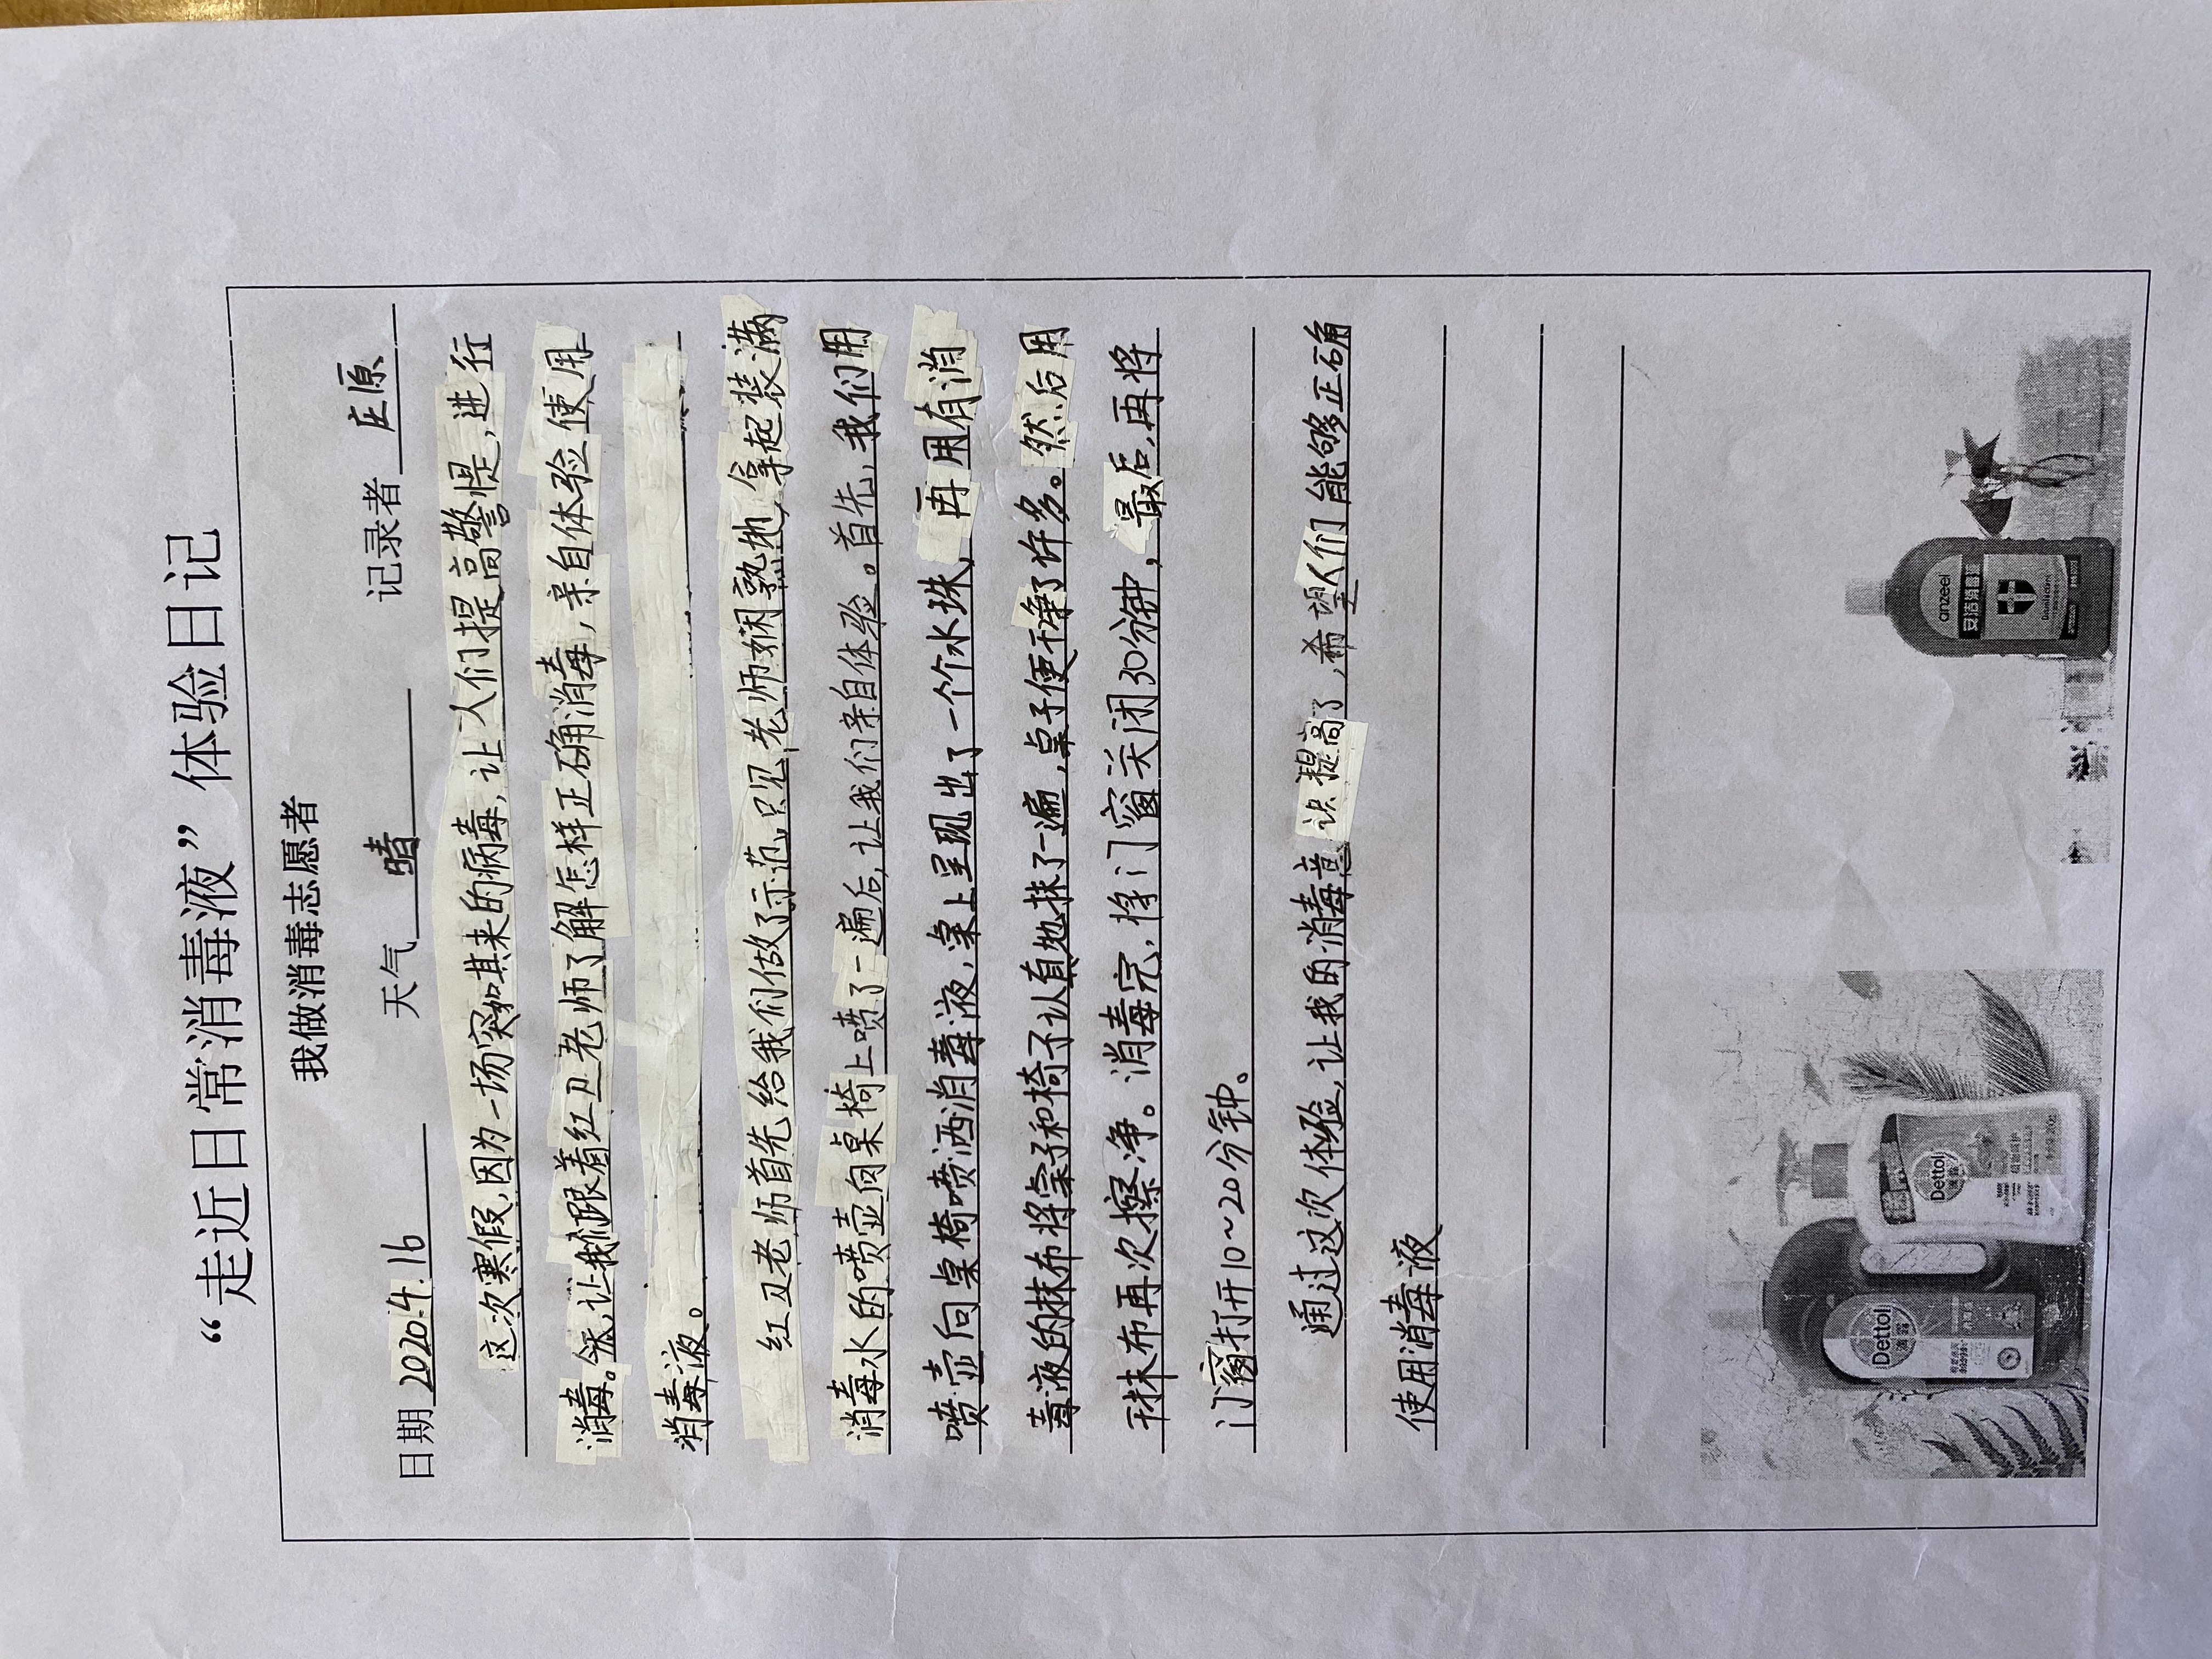 “走近日常消毒液”体验日记
我做消毒志愿者
日期 2020.4.16 天气 晴 记录者 庄原
这次寒假,因为一场突如其来的病毒,让人们提高警惕,进行
消毒。今天,让我们跟着红卫老师了解怎样正确消毒,亲自体验使用
消毒液。
红卫老师首先给我们做了示范,只见老师娴熟地拿起装满
消毒水的喷壶向桌椅上喷了一遍后,让我们亲自体验。首先,我们用
喷壶向桌椅喷洒消毒液,桌上呈现出了一个个水珠,再用有消
毒液的抹布将桌子和椅子认真地抹了一遍,桌子便干净了许多。然后用
干抹布再次擦净。消毒完,将门窗关闭30分钟,最后,再将
门窗打开10~20分钟。
通过这次体验,让我的消毒意识提高了,希望人们能够正确
使用消毒液
Dettol
滴露
Dettol
滴露
anzeel
安洁消毒液